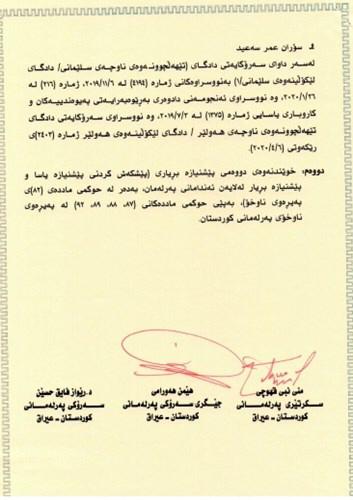 ٤. سۆران عمر سەعید
لەسەر داوای سەرۆکایەتی دادگای (تێهەڵچوونەوەی ناوچەی سلێمانی/ دادگای
لێکۆڵینەوەی سلێمانی/١) بەنووسراوەکانی ژمارە (٤١٩٤) لە ٢٠١٩/١١/٦، ژمارە (٢١٦) لە
٢٠٢٠/١/٢٦، وە نووسراوی ئەنجومەنی دادوەری بەڕێوەبەرایەتی پەیوەندییەکان و
کاروباری یاسایی ژمارە (١٣٧٥) لە ٢٠١٩/٧/٢، وە نووسراوی سەرۆکایەتی دادگای
تێهەڵچوونەوەی ناوچەی هەولێر / دادگای لێکۆڵینەوەی هەولێر ژمارە (٢٤٠٣)ی
ڕێکەوتی (٢٠٢٠/٤/٦).
دووەم: خوێندنەوەی دووەمی پێشنیازە بڕیاری (پێشکەش کردنی پێشنیازە یاسا و
پێشنیازە بڕیار لەلایەن ئەندامانی پەرلەمان، بەدەر لە حوکمی ماددەی (٨٢)ی
پەیڕەوی ناوخۆ)، بەپێی حوکمی ماددەکانی (٨٧، ٨٨، ٨٩، ٩٢) لە پەیڕەوی
ناوخۆی پەرلەمانی کوردستان.
منى نبی قهوچی
سکرتێری پەرلەمانی
کوردستان – عیراق
هێمن هەورامی
جێگری سەرۆکی پەرلەمانی
کوردستان – عیراق
د.ڕێواز فایق حسێن
سەرۆکی پەرلەمانی
کوردستان – عیراق